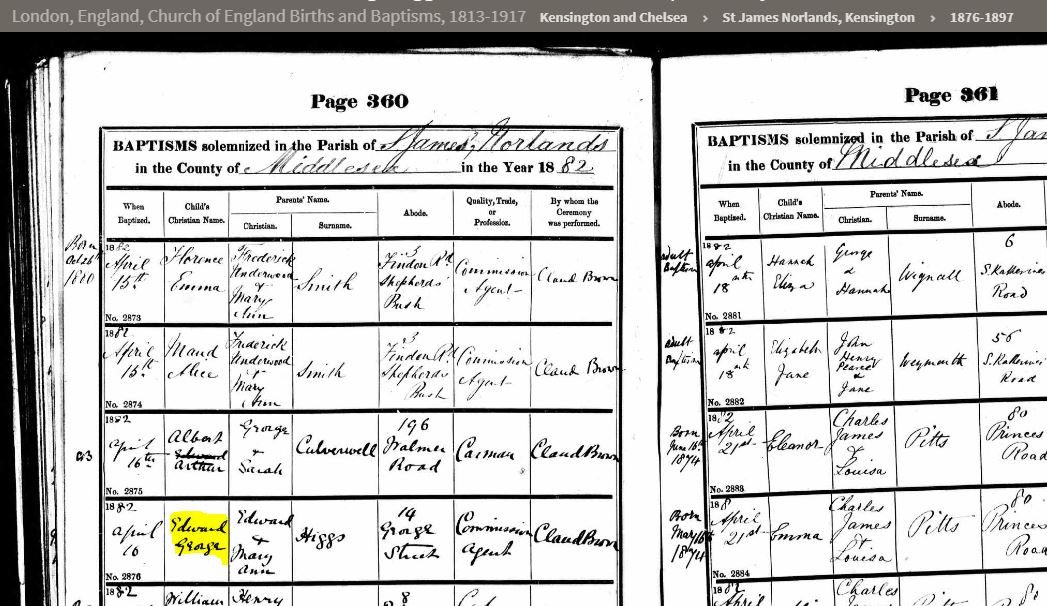 London, England, Church of England Births and Baptisms, 1813-1917 Kensington and Chelsea › St James Norlands, Kensington › 1876-1897
Page 360
BAPTISMS solemnized in the Parish of St James, Norlands
in the County of Middlesex in the Year 1882
When Baptized.
Child's Christian Name.
Parents' Name.
Christian.
Surname.
Abode.
Quality, Trade, or Profession.
By whom the Ceremony was performed.
Born
1882
April
15th
No. 2873
Florence
Emma
Frederick
Underwood
&
Mary
Ann
Smith
3
Findon Rd
Shepherds
Bush
Commission
Agent
Claud Brown
1882
April
15th
No. 2874
Maud
Alice
Frederick
Underwood
&
Mary
Ann
Smith
3
Findon Rd
Shepherds
Bush
Commission
Agent
Claud Brown
1882
April
16th
No. 2875
Albert
Edward
Arthur
George
&
Sarah
Culverwell
196
Walmer
Road
Carman
Claud Brown
1882
April
16
No. 2876
Edward
George
Edward
&
Mary
Ann
Higgs
14
George
Street
Commission
Agent
Claud Brown
1882
William
Henry
8
Page 361
BAPTISMS solemnized in the Parish of St Jam
in the County of Middlesex
When Baptized.
Child's Christian Name.
Parents' Name.
Christian.
Surname.
Abode.
adult
Baptism
1882
april
18
No. 2881
Hannah
Eliza
George
&
Hannah
Wignall
6
S. Katherines
Road
adult
Baptism
1882
april
18
No. 2882
Elizabeth
Jane
John
Henry
Pearce
&
Jane
Weymouth
56
S. Katherines
Road
Born
June 16th
1874
1882
April
21st
No. 2883
Eleanor
Charles
James
&
Louisa
Pitts
80
Princes
Road
Born
May 16th
1874
188
April
21st
No. 2884
Emma
Charles
James
&
Louisa
Pitts
80
Princes
Road
1882
April
Charles